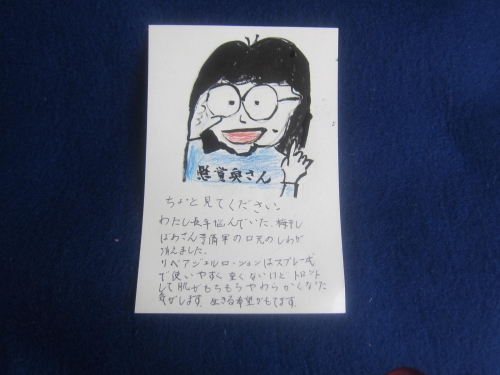 懸賞奥さん
ちょと見てください
わたし長年悩んでいた、梅干し
ばあさん予備軍の口元のしわが
消えました。
リペアジェルローションはスプレー式
で使いやすく 重くないけど トロント
して肌がもちもちやわらかくなった
気がします、生きる希望がもてます。